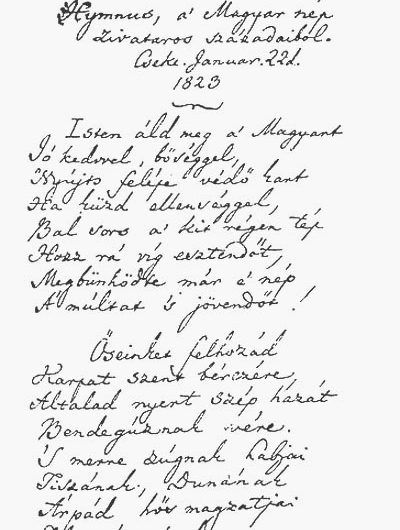 Hymnus, a' Magyar nép
zivataros századaiból.
Cseke. Januar. 22d.
1823
Isten áld meg a' Magyart
Jó kedvvel, bőséggel,
Nyújts feléje védő kart
Ha küzd ellenséggel,
Bal sors a' kit régen tép
Hozz rá víg esztendőt,
Megbűnhődte már e' nép
A' múltat 's jövendőt!
Őseinket felhozád
Karpat szent bérczére,
Általad nyert szép hazát
Bendegúznak vére.
'S merre zúgnak habjai
Tiszának, Dunának
Árpád hős magzatjai